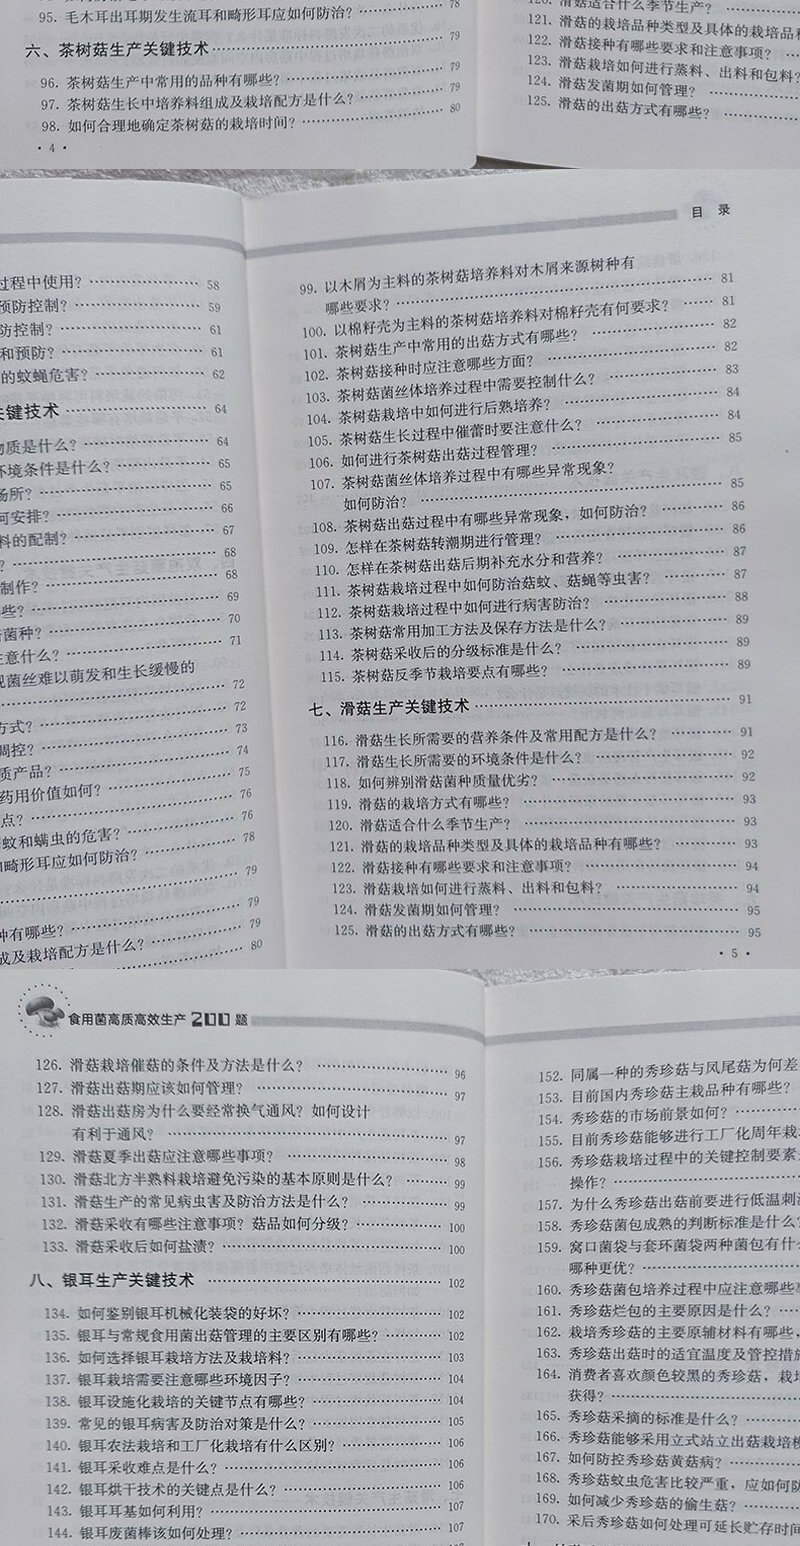 95. 毛木耳出耳期发生流耳和畸形耳应如何防治? 78
六、茶树菇生产关键技术 79
96. 茶树菇生产中常用的品种有哪些? 79
97. 茶树菇生长中培养料组成及栽培配方是什么? 79
98. 如何合理地确定茶树菇的栽培时间? 80
· 4 ·
120. 滑菇适合什么季节生产?
121. 滑菇的栽培品种类型及具体的栽培品种
122. 滑菇接种有哪些要求和注意事项?
123. 滑菇栽培如何进行蒸料、出料和包料?
124. 滑菇发菌期如何管理?
125. 滑菇的出菇方式有哪些?
过程中使用? 58
预防控制? 59
防控制? 61
和预防? 61
的蚊蝇危害? 62
关键技术 64
物质是什么? 64
环境条件是什么? 65
场所? 65
何安排? 66
料的配制? 67
? 68
制作? 68
些? 69
菌种? 70
注意什么? 71
现菌丝难以萌发和生长缓慢的
72
方式? 72
调控? 73
质产品? 74
药用价值如何? 75
点? 76
蚊和螨虫的危害? 76
畸形耳应如何防治? 78
79
种有哪些? 79
成及栽培配方是什么? 79
80
目 录
99. 以木屑为主料的茶树菇培养料对木屑来源树种有
哪些要求? 81
100. 以棉籽壳为主料的茶树菇培养料对棉籽壳有何要求? 81
101. 茶树菇生产中常用的出菇方式有哪些? 82
102. 茶树菇接种时应注意哪些方面? 82
103. 茶树菇菌丝体培养过程中需要控制什么? 83
104. 茶树菇栽培中如何进行后熟培养? 84
105. 茶树菇生长过程中催蕾时要注意什么? 84
106. 如何进行茶树菇出菇过程管理? 85
107. 茶树菇菌丝体培养过程中有哪些异常现象?
如何防治? 85
108. 茶树菇出菇过程中有哪些异常现象，如何防治? 86
109. 怎样在茶树菇转潮期进行管理? 86
110. 怎样在茶树菇出菇后期补充水分和营养? 87
111. 茶树菇栽培过程中如何防治菇蚊、菇蝇等虫害? 87
112. 茶树菇栽培过程中如何进行病害防治? 88
113. 茶树菇常用加工方法及保存方法是什么? 89
114. 茶树菇采收后的分级标准是什么? 89
115. 茶树菇反季节栽培要点有哪些? 89
七、滑菇生产关键技术 91
116. 滑菇生长所需要的营养条件及常用配方是什么? 91
117. 滑菇生长所需要的环境条件是什么? 92
118. 如何辨别滑菇菌种质量优劣? 92
119. 滑菇的栽培方式有哪些? 93
120. 滑菇适合什么季节生产? 93
121. 滑菇的栽培品种类型及具体的栽培品种有哪些? 93
122. 滑菇接种有哪些要求和注意事项? 94
123. 滑菇栽培如何进行蒸料、出料和包料? 94
124. 滑菇发菌期如何管理? 95
125. 滑菇的出菇方式有哪些? 95
· 5 ·
食用菌高质高效生产200题
126. 滑菇栽培催菇的条件及方法是什么? 96
127. 滑菇出菇期应该如何管理? 97
128. 滑菇出菇房为什么要经常换气通风? 如何设计
有利于通风? 97
129. 滑菇夏季出菇应注意哪些事项? 98
130. 滑菇北方半熟料栽培避免污染的基本原则是什么? 99
131. 滑菇生产的常见病虫害及防治方法是什么? 99
132. 滑菇采收有哪些注意事项? 菇品如何分级? 100
133. 滑菇采收后如何盐渍? 100
八、银耳生产关键技术 102
134. 如何鉴别银耳机械化装袋的好坏? 102
135. 银耳与常规食用菌出菇管理的主要区别有哪些? 102
136. 如何选择银耳栽培方法及栽培料? 103
137. 银耳栽培需要注意哪些环境因子? 104
138. 银耳设施化栽培的关键节点有哪些? 104
139. 常见的银耳病害及防治对策是什么? 105
140. 银耳农法栽培和工厂化栽培有什么区别? 106
141. 银耳采收难点是什么? 106
142. 银耳烘干技术的关键点是什么? 106
143. 银耳耳基如何利用? 107
144. 银耳废菌棒该如何处理? 107
152. 同属一种的秀珍菇与凤尾菇为何差
153. 目前国内秀珍菇主栽品种有哪些?
154. 秀珍菇的市场前景如何?
155. 目前秀珍菇能够进行工厂化周年栽
156. 秀珍菇栽培过程中的关键控制要素
操作?
157. 为什么秀珍菇出菇前要进行低温刺
158. 秀珍菇菌包成熟的判断标准是什么?
159. 窝口菌袋与套环菌袋两种菌包有什
哪种更优?
160. 秀珍菇菌包培养过程中应注意哪些
161. 秀珍菇烂包的主要原因是什么?
162. 栽培秀珍菇的主要原辅材料有哪些,
163. 秀珍菇出菇时的适宜温度及管控措施
164. 消费者喜欢颜色较黑的秀珍菇，栽
获得?
165. 秀珍菇采摘的标准是什么?
166. 秀珍菇能够采用立式站立出菇栽培
167. 如何防控秀珍菇黄菇病?
168. 秀珍菇蚊虫危害比较严重，应如何防
169. 如何减少秀珍菇的偷生菇?
170. 采后秀珍菇如何处理可延长贮存时间